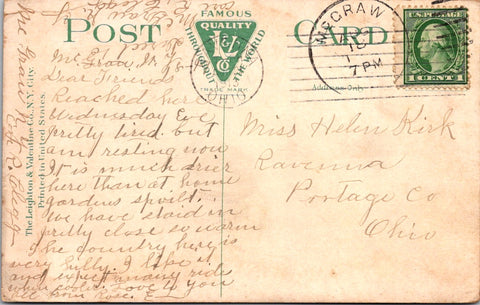 POST
CARD
FAMOUS
QUALITY
THROUGHOUT THE WORLD
L & V
CO
TRADE MARK
OHIO
McGRAW
7 PM
U.S. POSTAGE
1 CENT 1
Address Only
The Leighton & Valentine Co., N.Y. City.
Printed in United States.
Mc Graw N. Y.
Dear Friend
Reached here
Wednesday Eve
pretty tired but
am resting now
It is much drier
here than at home
gardens spoilt.
We have staid in
pretty close so warm
The country here is
very hilly. I like it
and expect many ride
when cooler. Love to you
all from Rose. E
Miss Helen Kirk
Ravenna
Portage Co
Ohio
Mc Graw N.Y.